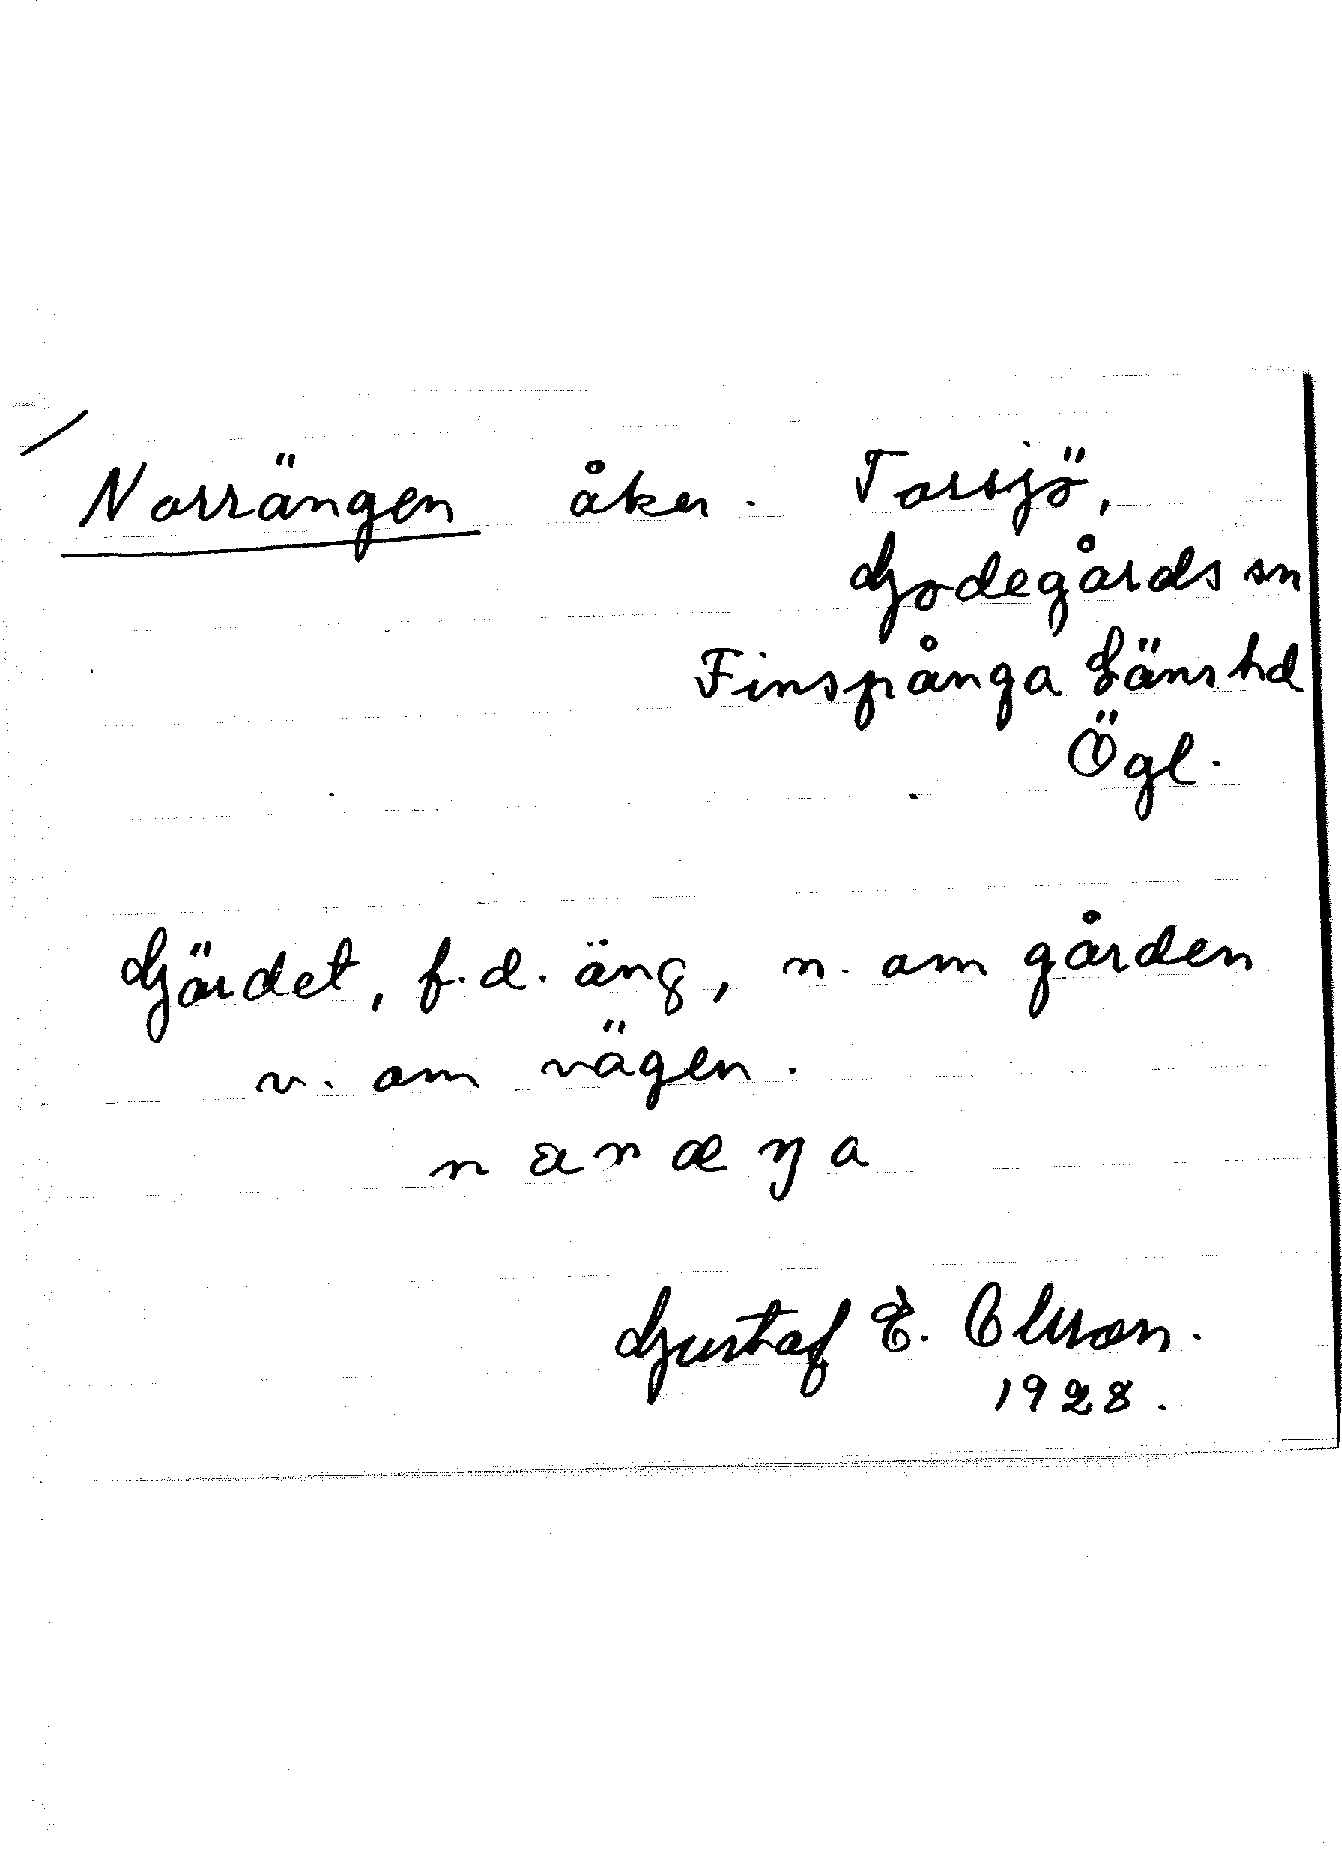 Norrängen åker. Torsjö,
Godegårds sn
Finspånga Läns hd
Ögl.
Gärdet, f.d. äng, n. om gården
v. om vägen.
n a n æ ŋ a
Gustaf E. Olsson.
1928.